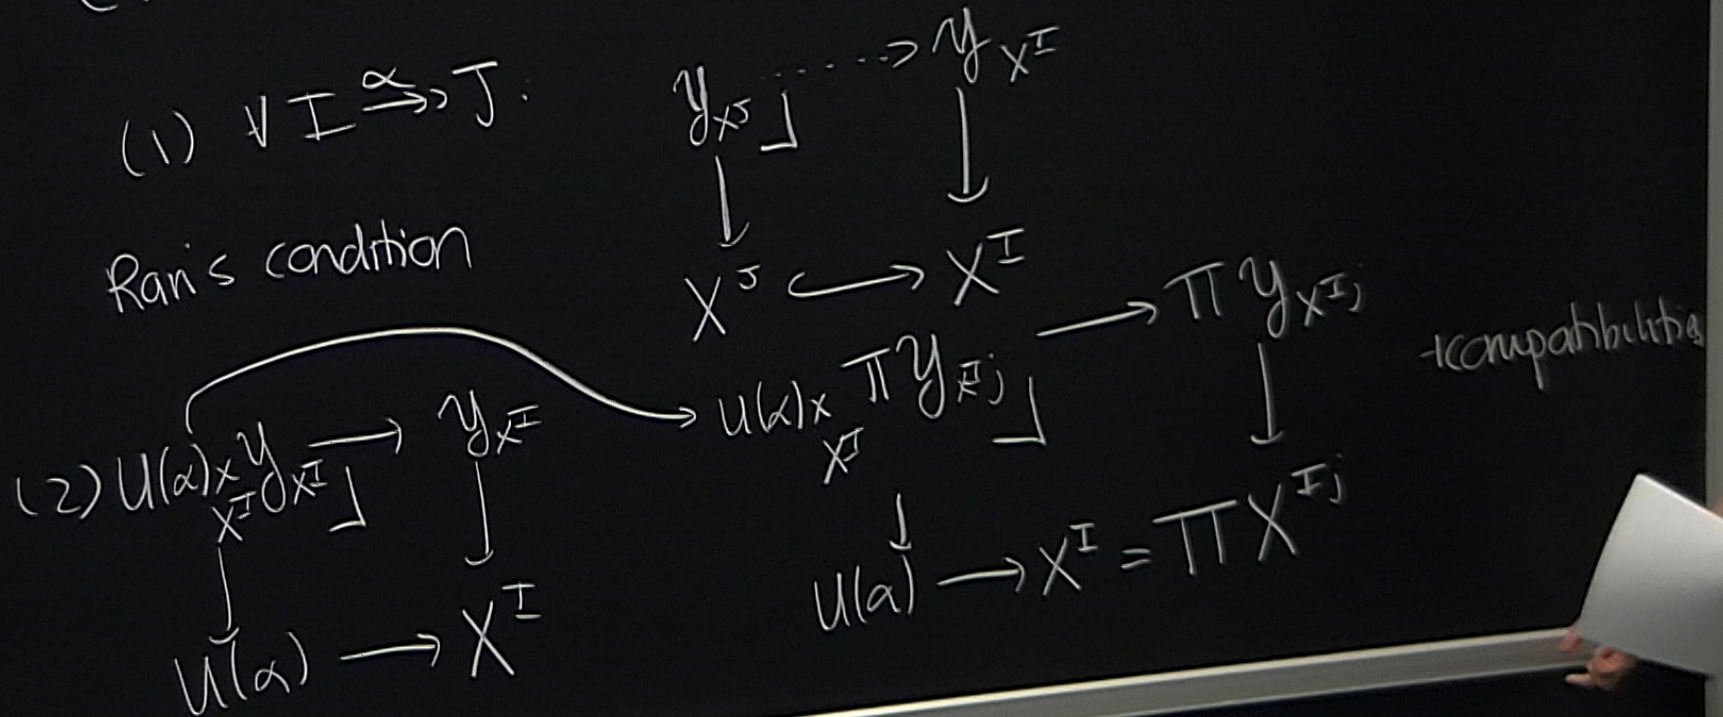 (1) ∀ I ↠^α J.
𝒴_{X^J} ⌟ ⋯> 𝒴_{X^I}
↓ ↓
X^J ↪ X^I
Ran's condition
(2) U(α) ×_{X^I} 𝒴_{X^I} ⌟ → 𝒴_{X^I}
↓ ↓
U(α) → X^I
U(α) ×_{X^I} ∏ 𝒴_{X^{I_j}} ⌟ → ∏ 𝒴_{X^{I_j}}
↓ ↓
U(α) → X^I = ∏ X^{I_j}
+compatibilities